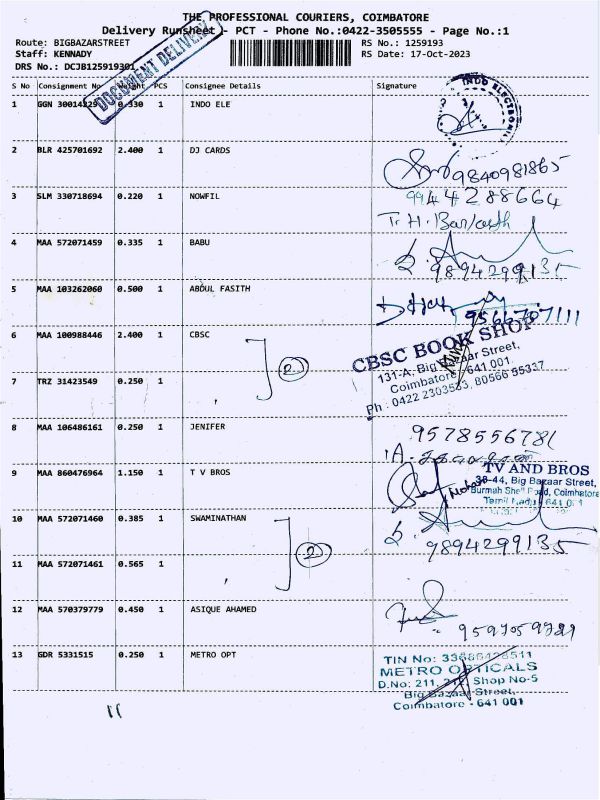 THE PROFESSIONAL COURIERS, COIMBATORE
Delivery Runsheet - PCT - Phone No.:0422-3505555 - Page No.:1
Route: BIGBAZARSTREET RS No.: 1259193
Staff: KENNADY RS Date: 17-Oct-2023
DRS No.: DCJB125919301
DOCUMENT DELIVERY
S No Consignment No Weight PCS Consignee Details Signature
1 GGN 30014229 0.330 1 INDO ELE
INDO ELECTRONIC
2 BLR 425701692 2.400 1 DJ CARDS
9840981865
3 SLM 330718694 0.220 1 NOWFIL
9944288664
4 MAA 572071459 0.335 1 BABU
9894299135
5 MAA 103262060 0.500 1 ABDUL FASITH
9566707111
6 MAA 100988446 2.400 1 CBSC
2
CBSC BOOK SHOP
131-A, Big Bazaar Street,
Coimbatore 641 001.
Ph : 0422 2303533, 80566 55337
7 TRZ 31423549 0.250 1 ,
8 MAA 106486161 0.250 1 JENIFER
9578556781
9 MAA 860476964 1.150 1 T V BROS
TV AND BROS
38-44, Big Bazaar Street,
Burmah Shell Road, Coimbatore
Tamil Nadu
10 MAA 572071460 0.385 1 SWAMINATHAN
2
9894299135
11 MAA 572071461 0.565 1 ,
12 MAA 570379779 0.450 1 ASIQUE AHAMED
13 GDR 5331515 0.250 1 METRO OPT
TIN No:
METRO OPTICALS
D.No: 211, Shop No-5
Big Bazaar Street,
Coimbatore - 641 001
11